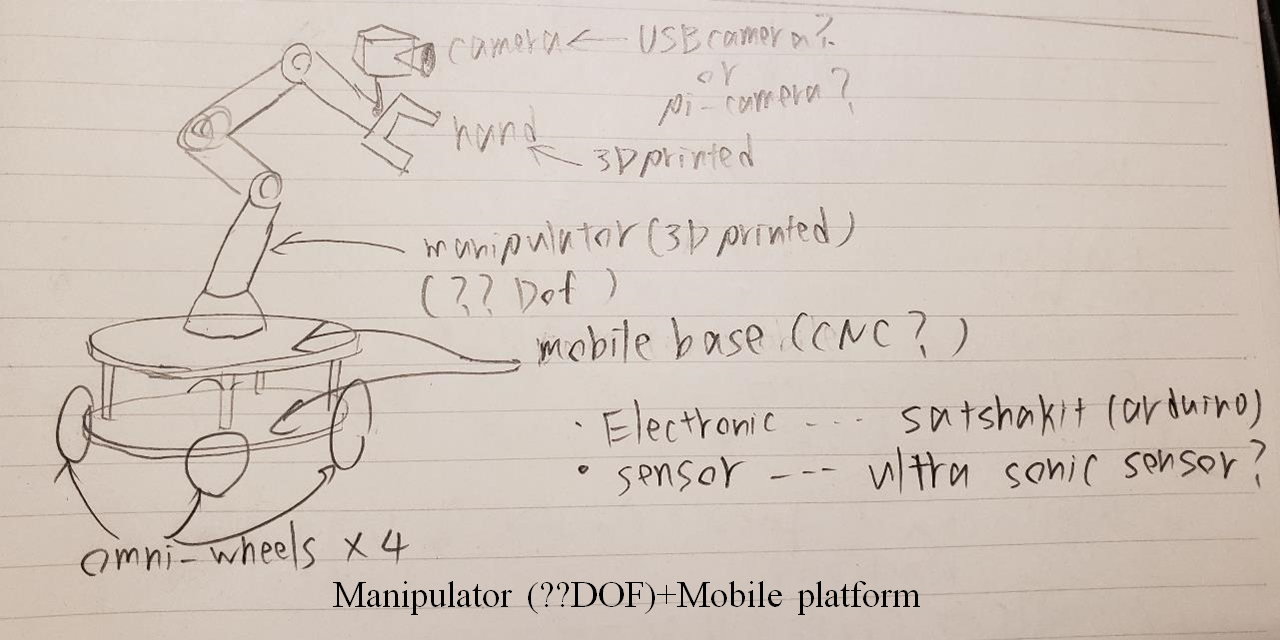 camera ← USB camera?
or
pi-camera?
hand
3D printed
manipulator (3D printed)
(?? Dof )
mobile base (CNC ? )
· Electronic --- satshakit (arduino)
• sensor --- ultra sonic sensor?
omni-wheels x 4
Manipulator (??DOF)+Mobile platform